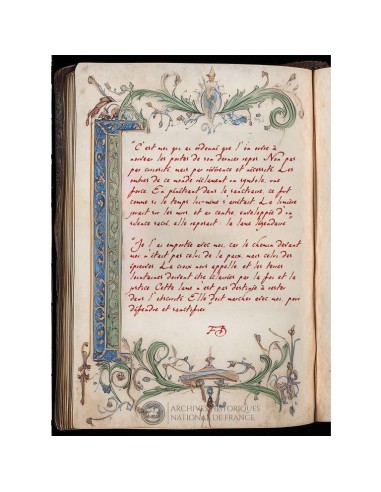 "C'est moi qui ai ordonné que l'on ouvre à
nouveau les portes de son dernier repos. Non pas
par curiosité mais par révérence et nécessité. Les
ombres de ce monde réclament un symbole, une
force. En pénétrant dans le sanctuaire, ce fut
comme si le temps lui-même s'arrêtait. La lumière
jouait sur les murs, et au centre, enveloppée d'un
silence sacré, elle reposait : la lame légendaire"
"Je l'ai emportée avec moi, car le chemin devant
moi n'était pas celui de la paix, mais celui des
épreuves. La croix nous appelle et les terres
lointaines doivent être éclairées par la foi et la
justice. Cette lame n'est pas destinée à rester
dans l'obscurité. Elle doit marcher avec moi, pour
défendre et sanctifier.
FB
ARCHIVES HISTORIQUES
NATIONAL DE FRANCE